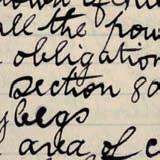 all the pow
obligation
section 80
ybegs
area of c